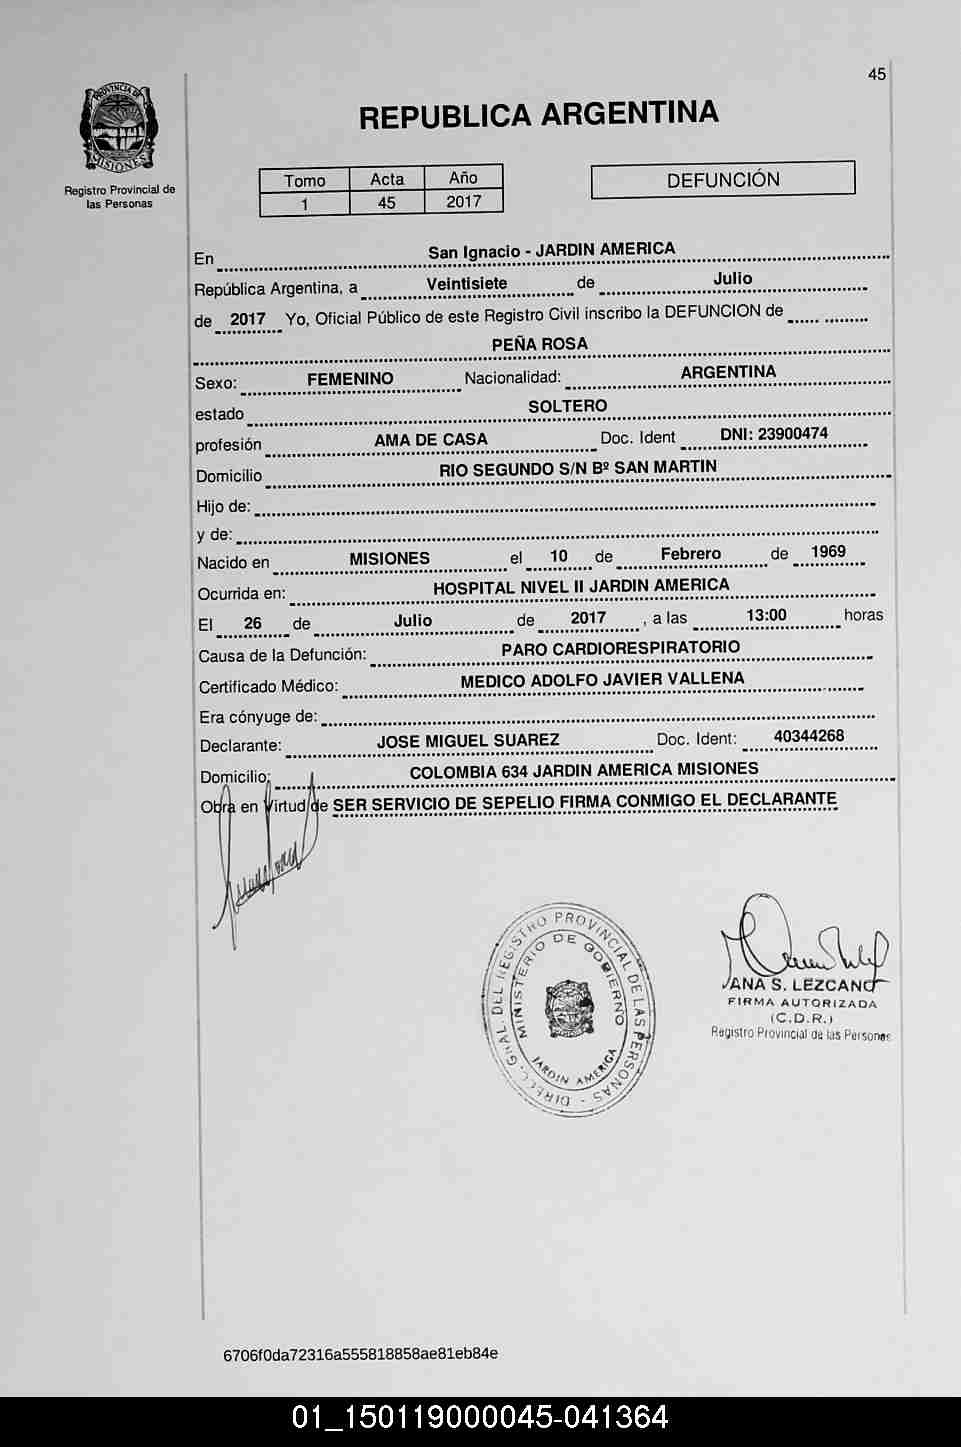 45
PROVINCIA DE
MISIONES
Registro Provincial de
las Personas
REPUBLICA ARGENTINA
Tomo Acta Año
1 45 2017
DEFUNCIÓN
En San Ignacio - JARDIN AMERICA
República Argentina, a Veintisiete de Julio
de 2017 Yo, Oficial Público de este Registro Civil inscribo la DEFUNCION de
PEÑA ROSA
Sexo: FEMENINO Nacionalidad: ARGENTINA
estado SOLTERO
profesión AMA DE CASA Doc. Ident DNI: 23900474
Domicilio RIO SEGUNDO S/N Bº SAN MARTIN
Hijo de:
y de:
Nacido en MISIONES el 10 de Febrero de 1969
Ocurrida en: HOSPITAL NIVEL II JARDIN AMERICA
El 26 de Julio de 2017 , a las 13:00 horas
Causa de la Defunción: PARO CARDIORESPIRATORIO
Certificado Médico: MEDICO ADOLFO JAVIER VALLENA
Era cónyuge de:
Declarante: JOSE MIGUEL SUAREZ Doc. Ident: 40344268
Domicilio: COLOMBIA 634 JARDIN AMERICA MISIONES
Obra en Virtud de SER SERVICIO DE SEPELIO FIRMA CONMIGO EL DECLARANTE
DIREC. GRAL. DEL REGISTRO PROVINCIAL DE LAS PERSONAS -
MINISTERIO DE GOBIERNO
JARDIN AMERICA
ANA S. LEZCANO
FIRMA AUTORIZADA
(C.D.R.)
Registro Provincial de las Personas
6706f0da72316a555818858ae81eb84e
01_150119000045-041364